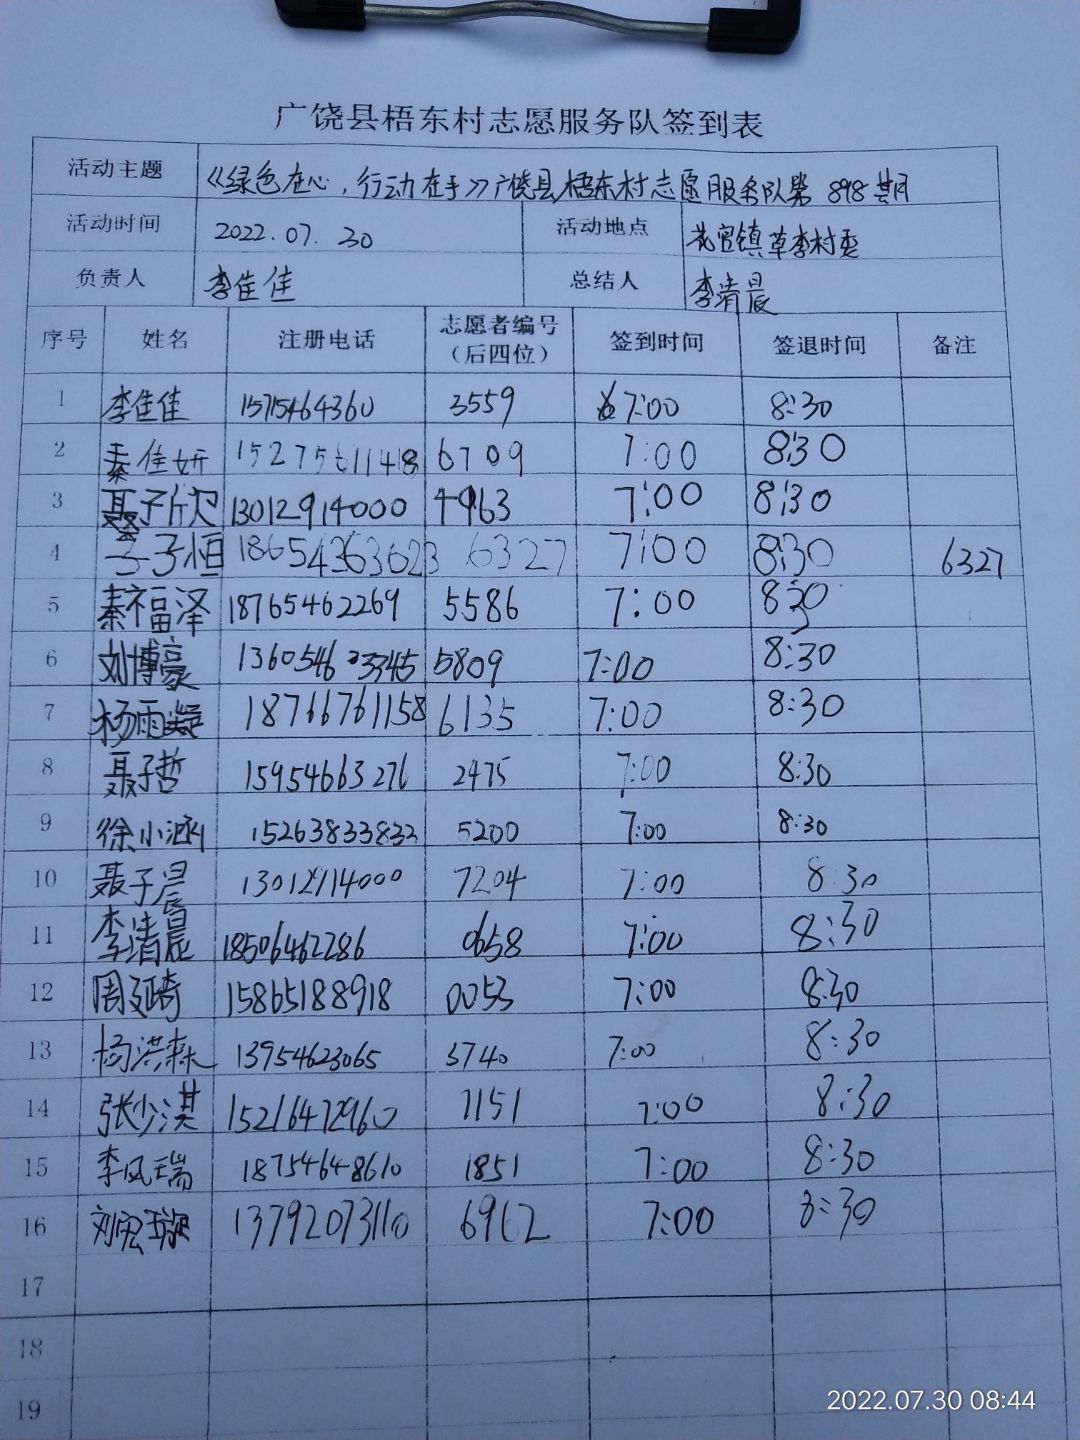 广饶县梧东村志愿服务队签到表
活动主题 《绿色在心，行动在手》广饶县梧东村志愿服务队第898期
活动时间 2022.07.30 活动地点 花官镇草李村委
负责人 李佳佳 总结人 李清晨
序号 姓名 注册电话 志愿者编号（后四位） 签到时间 签退时间 备注
1 李佳佳 15715464360 3559 7:00 8:30
2 秦佳妍 6709 7:00 8:30
3 聂子欣 13012914000 4963 7:00 8:30
4 子恒 18654363623 6327 7:00 8:30 6327
5 秦福泽 18765462269 5586 7:00 8:30
6 刘博豪 5809 7:00 8:30
7 杨雨凝 18766761158 6135 7:00 8:30
8 聂子哲 15954663276 2475 7:00 8:30
9 徐小涵 15263833833 5200 7:00 8:30
10 聂子晨 13012914000 7204 7:00 8:30
11 李清晨 18506462286 0658 7:00 8:30
12 周延琦 15865188918 0053 7:00 8:30
13 杨洪森 13954623065 3740 7:00 8:30
14 张少淇 15216472960 7151 7:00 8:30
15 李风瑞 18754648610 1851 7:00 8:30
16 刘宏璇 13792073110 6962 7:00 8:30
17
18
19
2022.07.30 08:44